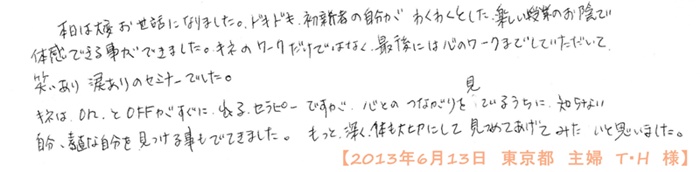 本日は大変お世話になりました。ドキドキ、初新者の自分が わくわくとした、楽しい授業のお陰で
体感できる事ができました。キネのワークだけではなく、最後には心のワークまでしていただいて、
笑いあり 涙ありのセミナーでした。
キネは、on、と OFFがすぐに、出る、セラピー ですが、心との つながりを 見 ているうちに、知らない
自分、素直な自分を見つける事もでてきました。もっと、深く、体も大切にして 見つめてあげて みた いと思いました。
【2013年6月13日 東京都 主婦 T・H 様】